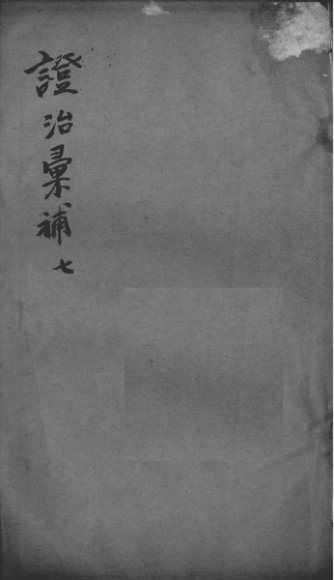 證治彙補 七